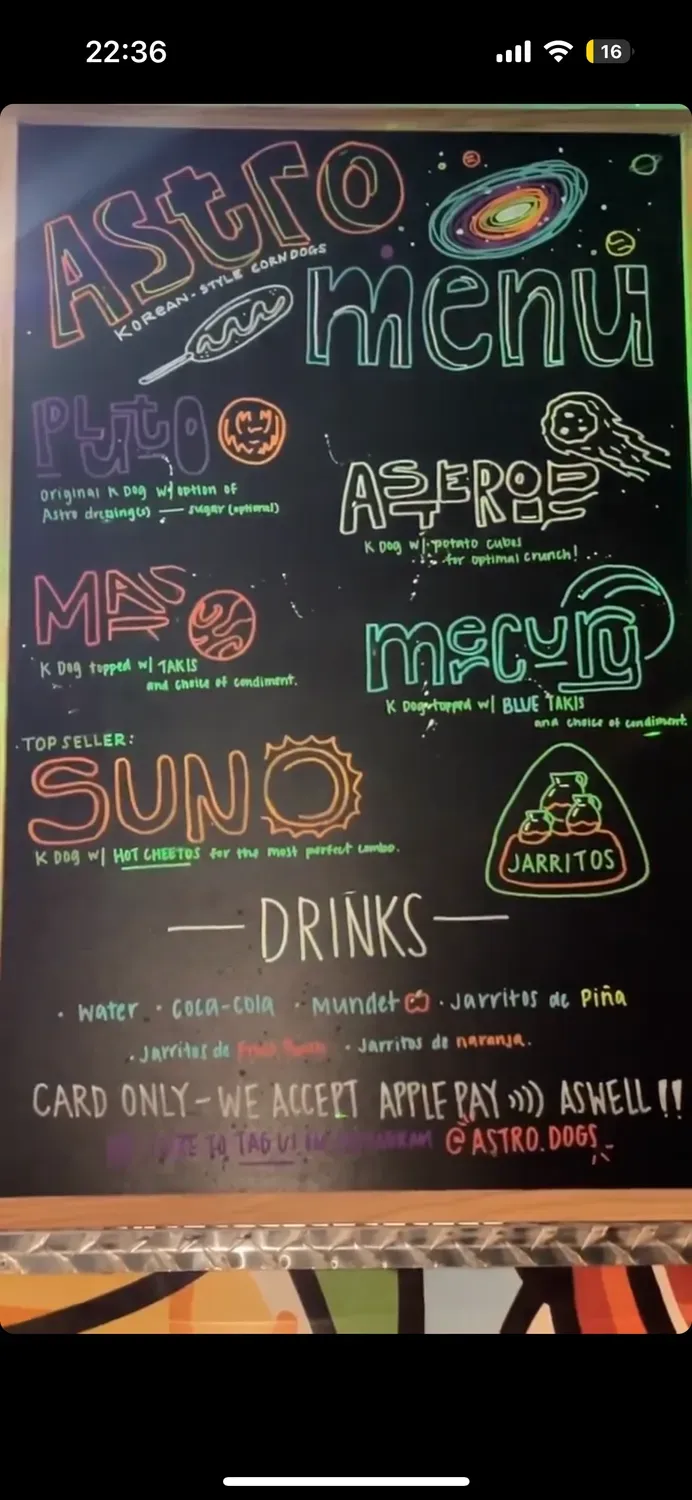 22:36
16
Astro
KOREAN-STYLE CORN DOGS
menu
PLUTO
Original K Dog w/ option of
Astro dressing(s) — sugar (optional)
ASTEROID
K Dog w/ potato cubes
for optimal crunch!
MARS
K Dog topped w/ TAKIS
and choice of condiment.
mercury
K Dog topped w/ BLUE TAKIS
and choice of condiment.
TOP SELLER:
SUN
K Dog w/ HOT CHEETOS for the most perfect combo.
JARRITOS
— DRINKS —
· Water · Coca-cola · Mundet · Jarritos de Piña
· Jarritos de · Jarritos de naranja.
CARD ONLY - WE ACCEPT APPLE PAY ))) ASWELL !!
TO TAG US @ASTRO.DOGS